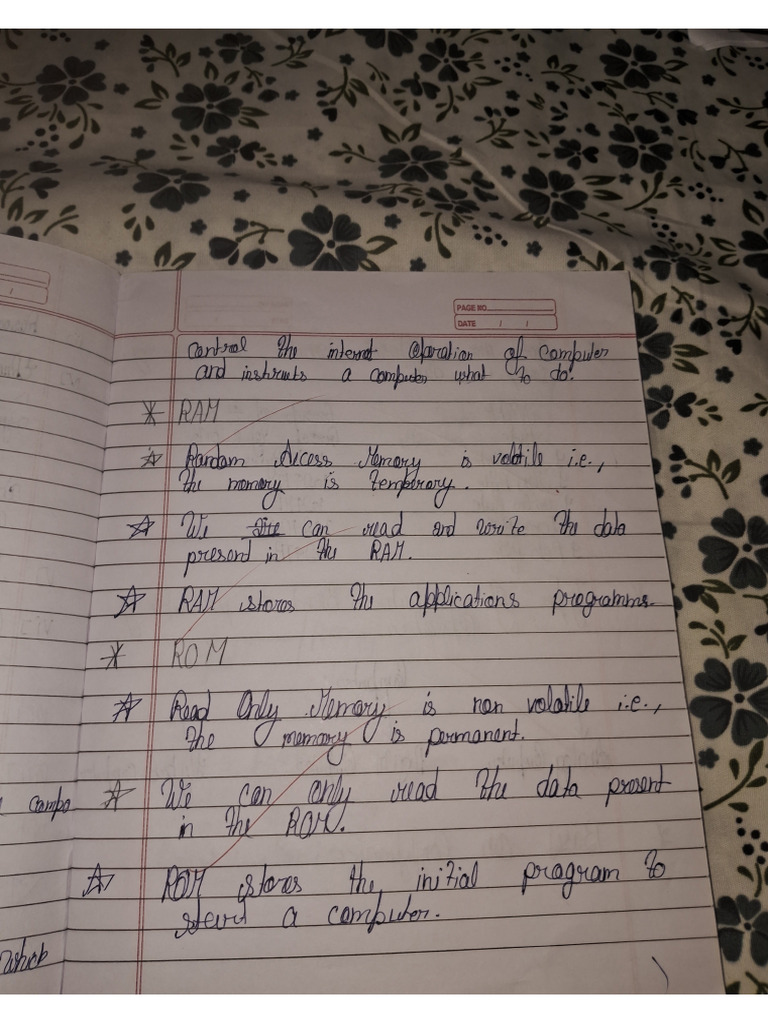 PAGE NO.
DATE / /
control the internet operation of computer
and instructs a computer what to do.
* RAM
☆ Random Access Memory is volatile i.e.,
the memory is temporary.
☆ We can read and write the data
present in the RAM.
☆ RAM stores the applications programms.
* ROM
☆ Read Only Memory is non volatile i.e.,
the memory is permanent.
☆ We can only read the data present
in the ROM.
☆ ROM stores the initial program to
start a computer.
campo